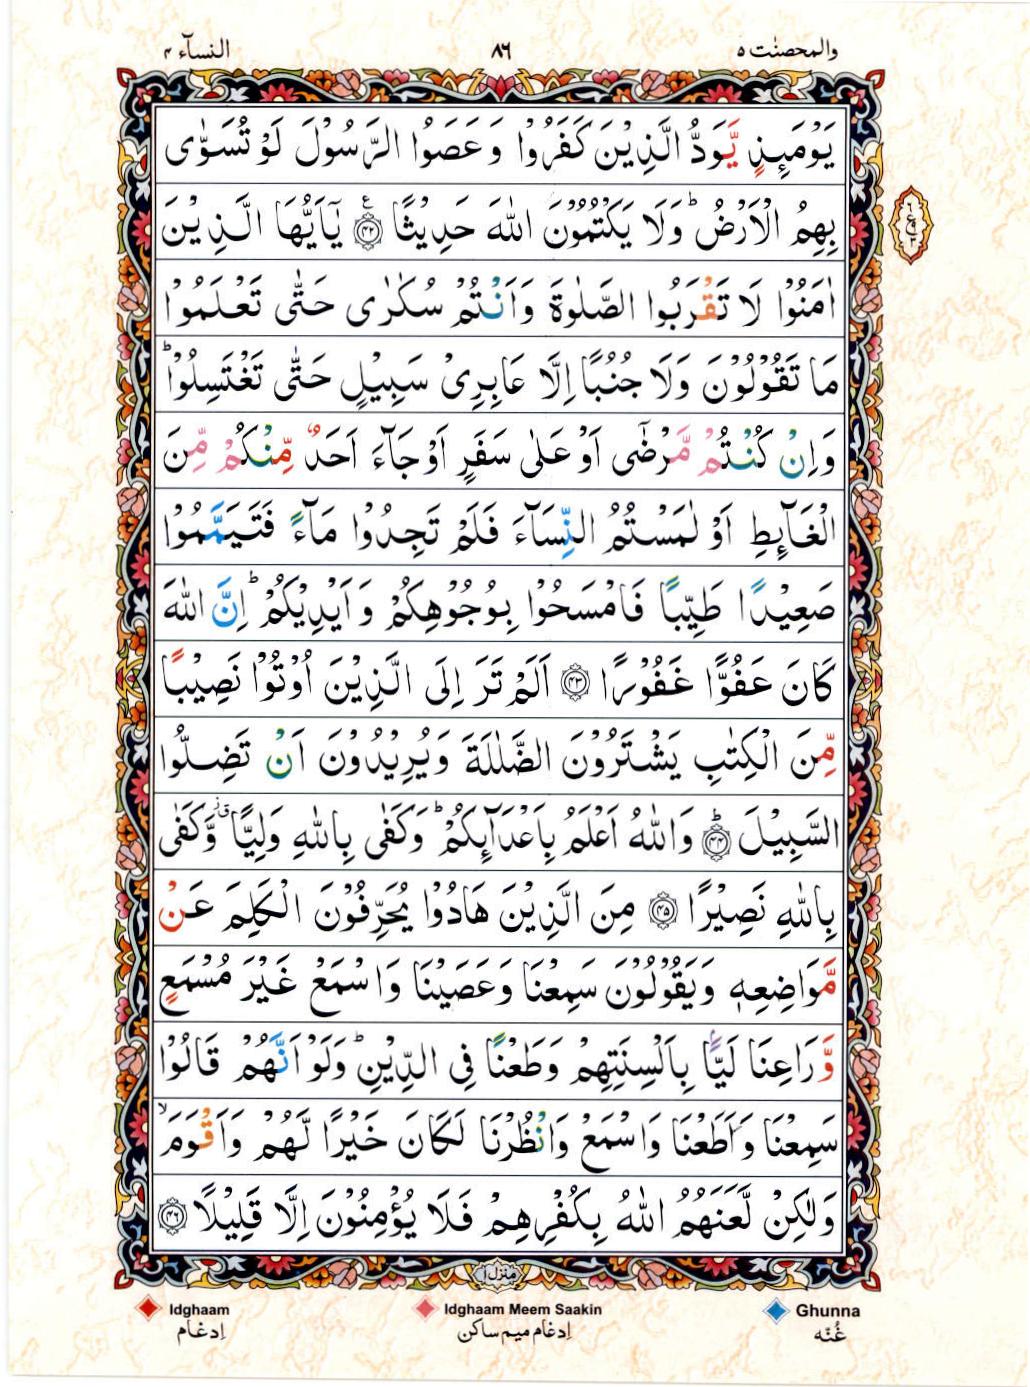 والمحصنٰت ٥ ٨٦ النسآء ٤
يَوْمَئِذٍ يَّوَدُّ الَّذِيْنَ كَفَرُوْا وَعَصَوُا الرَّسُوْلَ لَوْ تُسَوّٰى
بِهِمُ الْاَرْضُ ؕ وَلَا يَكْتُمُوْنَ اللّٰهَ حَدِيْثًا ۝٤٢ ع يٰۤاَيُّهَا الَّذِيْنَ
اٰمَنُوْا لَا تَقْرَبُوا الصَّلٰوةَ وَاَنْتُمْ سُكٰرٰى حَتّٰى تَعْلَمُوْا
مَا تَقُوْلُوْنَ وَلَا جُنُبًا اِلَّا عَابِرِيْ سَبِيْلٍ حَتّٰى تَغْتَسِلُوْا ؕ
وَاِنْ كُنْتُمْ مَّرْضٰۤى اَوْ عَلٰى سَفَرٍ اَوْ جَآءَ اَحَدٌ مِّنْكُمْ مِّنَ
الْغَآئِطِ اَوْ لٰمَسْتُمُ النِّسَآءَ فَلَمْ تَجِدُوْا مَآءً فَتَيَمَّمُوْا
صَعِيْدًا طَيِّبًا فَامْسَحُوْا بِوُجُوْهِكُمْ وَاَيْدِيْكُمْ ؕ اِنَّ اللّٰهَ
كَانَ عَفُوًّا غَفُوْرًا ۝٤٣ اَلَمْ تَرَ اِلَى الَّذِيْنَ اُوْتُوْا نَصِيْبًا
مِّنَ الْكِتٰبِ يَشْتَرُوْنَ الضَّلٰلَةَ وَيُرِيْدُوْنَ اَنْ تَضِلُّوا
السَّبِيْلَ ؕ ۝٤٤ وَاللّٰهُ اَعْلَمُ بِاَعْدَآئِكُمْ ؕ وَكَفٰى بِاللّٰهِ وَلِيًّا ؗۗ وَّكَفٰى
بِاللّٰهِ نَصِيْرًا ۝٤٥ مِنَ الَّذِيْنَ هَادُوْا يُحَرِّفُوْنَ الْكَلِمَ عَنْ
مَّوَاضِعِهٖ وَيَقُوْلُوْنَ سَمِعْنَا وَعَصَيْنَا وَاسْمَعْ غَيْرَ مُسْمَعٍ
وَّرَاعِنَا لَيًّۢا بِاَلْسِنَتِهِمْ وَطَعْنًا فِي الدِّيْنِ ؕ وَلَوْ اَنَّهُمْ قَالُوْا
سَمِعْنَا وَاَطَعْنَا وَاسْمَعْ وَانْظُرْنَا لَكَانَ خَيْرًا لَّهُمْ وَاَقْوَمَ ۙ
وَلٰكِنْ لَّعَنَهُمُ اللّٰهُ بِكُفْرِهِمْ فَلَا يُؤْمِنُوْنَ اِلَّا قَلِيْلًا ۝٤٦
منزل ١
Idghaam Idghaam Meem Saakin Ghunna
اِدغام اِدغام ميم ساكن غُنّه